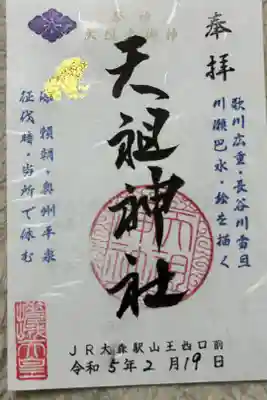 奉拝
歌川広重・長谷川雪旦
川瀬巴水・絵を描く
天祖神社
源頼朝・奥州平泉
征伐時・当所で休む
JR大森駅山王西口前
令和5年2月19日